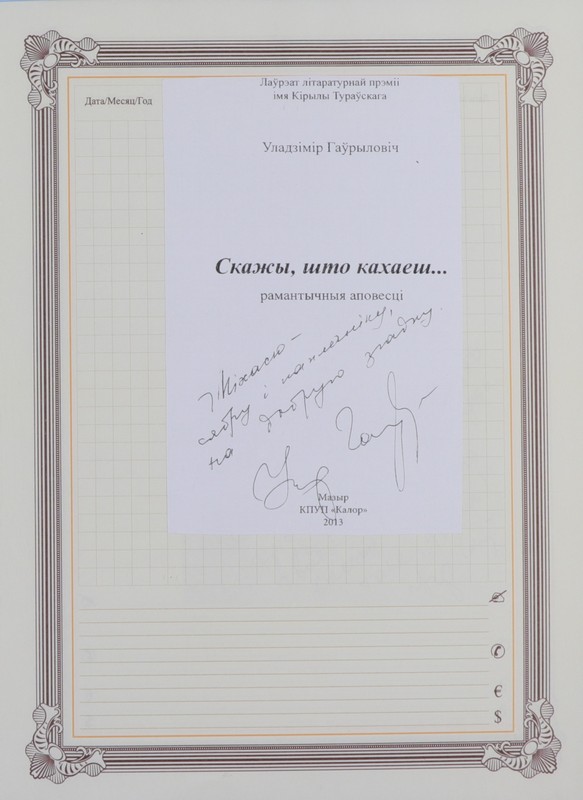 Лаўрэат літаратурнай прэміі
імя Кірылы Тураўскага
Дата/Месяц/Год
Уладзімір Гаўрыловіч
Скажы, што кахаеш...
рамантычныя аповесці
Міхасю –
сябру і паплечніку,
на добрую згадку
Мазыр
КПУП «Калор»
2013
€
$